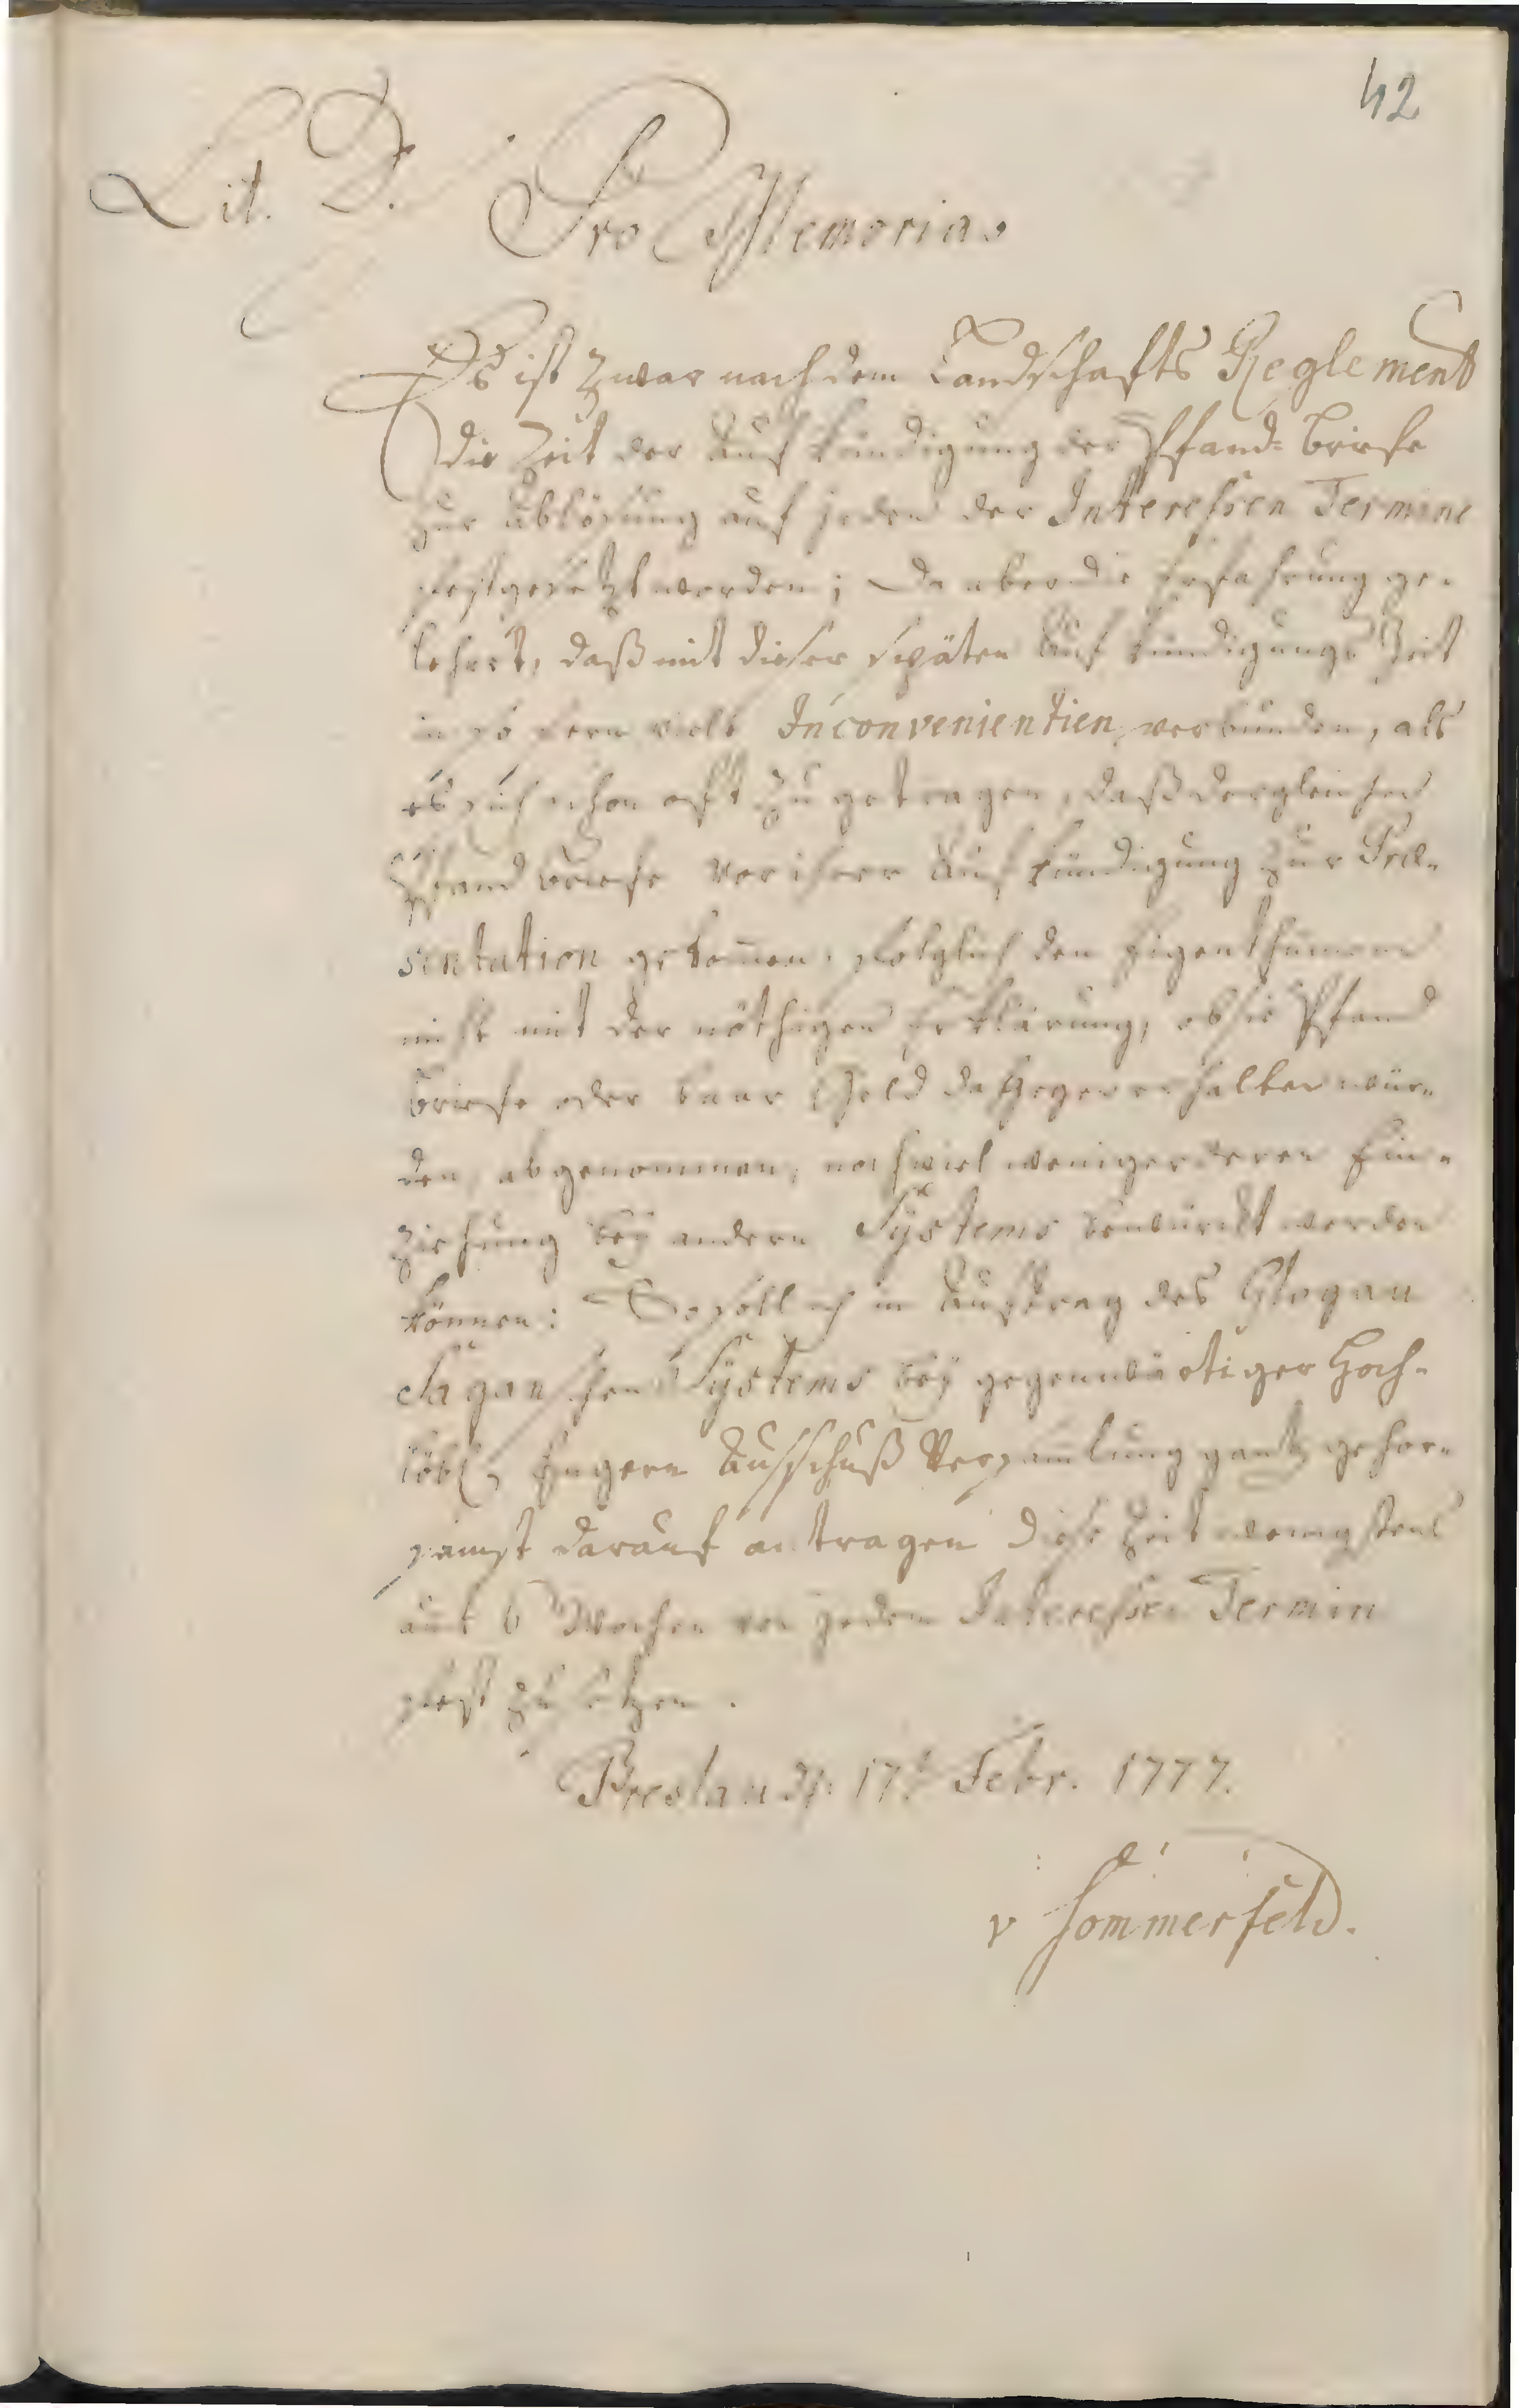 42
Lit. D.
Pro Memoria.
Es ist zwar nach dem Landschafts Reglement
die Zeit der Aufkündigung der Pfand-Briefe
zur Ablösung auf jeden der Interessen Termine
festgesetzt worden; Da aber die Erfahrung ge-
lehret, daß mit dieser späten Aufkündigungs Zeit
in so fern viele Inconvenientien verbunden, als
es sich schon oft zu getragen, daß dergleichen
Pfandbriefe vor ihrer Aufkündigung zur Prae-
sentation gekommen, folglich den Eigenthümern
nicht mit der nöthigen Erklärung, ob sie Pfand
briefe oder baar Geld dagegen erhalten wür-
den, abgenommen, noch viel weniger deren Ein-
ziehung bey andern Systems bewürckt werden
können: So soll ich in Auftrag des Glogau
Saganschen Systems bey gegenwärtiger Hoch-
löbl. Engern Ausschuß Versamlung gantz gehor-
samst darauf antragen diese Zeit wenigstens
auf 6 Wochen vor jedem Interessen Termin
fest zu setzen.
Breslau d. 17t Febr. 1777.
v Sommerfeld.